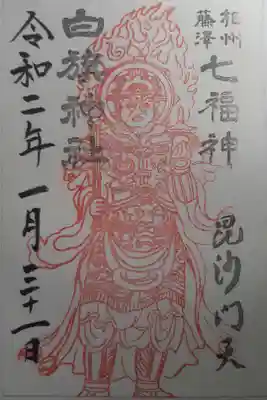 相州
藤澤
七福神
毘沙門天
白旗神社
令和二年 一月 三十一日